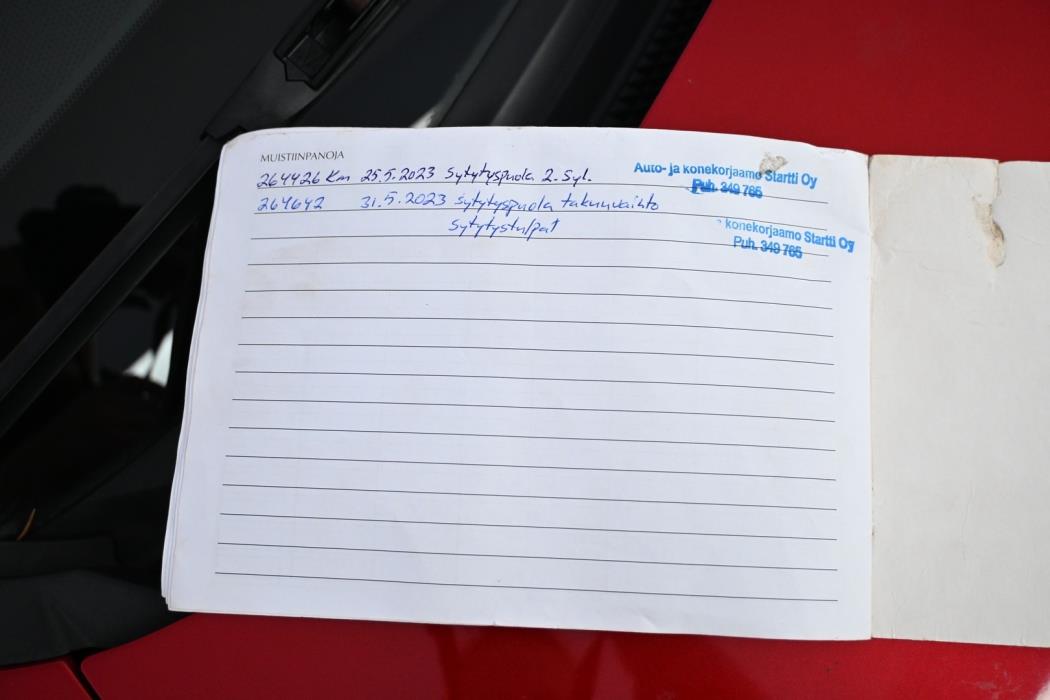 MUISTIINPANOJA
264426 Km 25.5.2023 Sytytyspuola 2. Syl.
Auto- ja konekorjaamo Startti Oy
Puh. 349 765
264642 31.5.2023 Sytytyspuola takuuvaihto
Sytytystulpat
konekorjaamo Startti Oy
Puh. 349 765